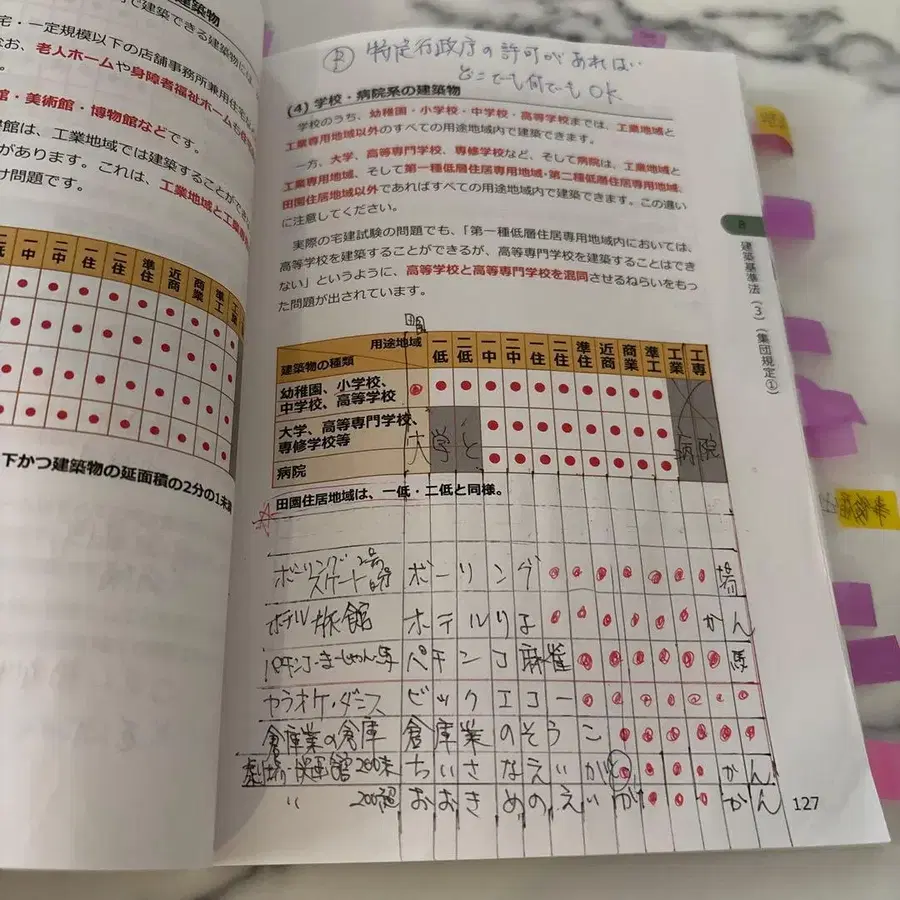 建築物
で建築できる建築物には
宅・一定規模以下の店舗事務所兼用住宅
なお、老人ホームや身障者福祉ホームも
館・美術館・博物館などです。
書館は、工業地域では建築することが
があります。これは、工業地域と工業専
け問題です。
低 一中 二中 一住 二住 準住 近商 商業 準工
下かつ建築物の延面積の2分の1未満
特定行政庁の許可があればい
どこでも何でもOK
(4) 学校・病院系の建築物
学校のうち、幼稚園・小学校・中学校・高等学校までは、工業地域と
工業専用地域以外のすべての用途地域内で建築できます。
一方、大学、高等専門学校、専修学校など、そして病院は、工業地域と
工業専用地域、そして第一種低層住居専用地域・第二種低層住居専用地域、
田園住居地域以外であればすべての用途地域内で建築できます。この違い
に注意してください。
実際の宅建試験の問題でも、「第一種低層住居専用地域内においては、
高等学校を建築することができるが、高等専門学校を建築することはでき
ない」というように、高等学校と高等専門学校を混同させるねらいをもっ
た問題が出されています。
田園
用途地域 一低 二低 一中 二中 一住 二住 準住 近商 商業 準工 工業 工専
建築物の種類
幼稚園、小学校、
中学校、高等学校
大学、高等専門学校、
専修学校等
大学と 病院
病院
田園住居地域は、一低・二低と同様。
ボーリング場
スケート場 ボーリング 場
ホテル 旅館 ホテルりょ かん
パチンコ・まーじゃん・馬 パチンコ麻雀 馬
カラオケ・ダンス ビックエコー
倉庫業の倉庫 倉庫業のそうこ
劇場・映画館 200未 ちいさなえいが かん
〃 200超 おおきめのえいが かん
127
8
建築基準法(3)(集団規定①)